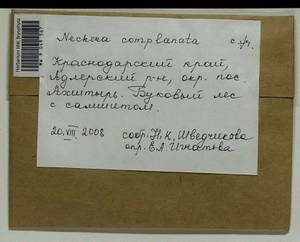 Neckera complanata c. sp.
Краснодарский край,
Адлерский р-н, окр. пос.
Ахштырь. Буковый лес
с самшитом.
20.VIII 2008 собр. Н.К. Шведчикова
опр. Е.А. Игнатова